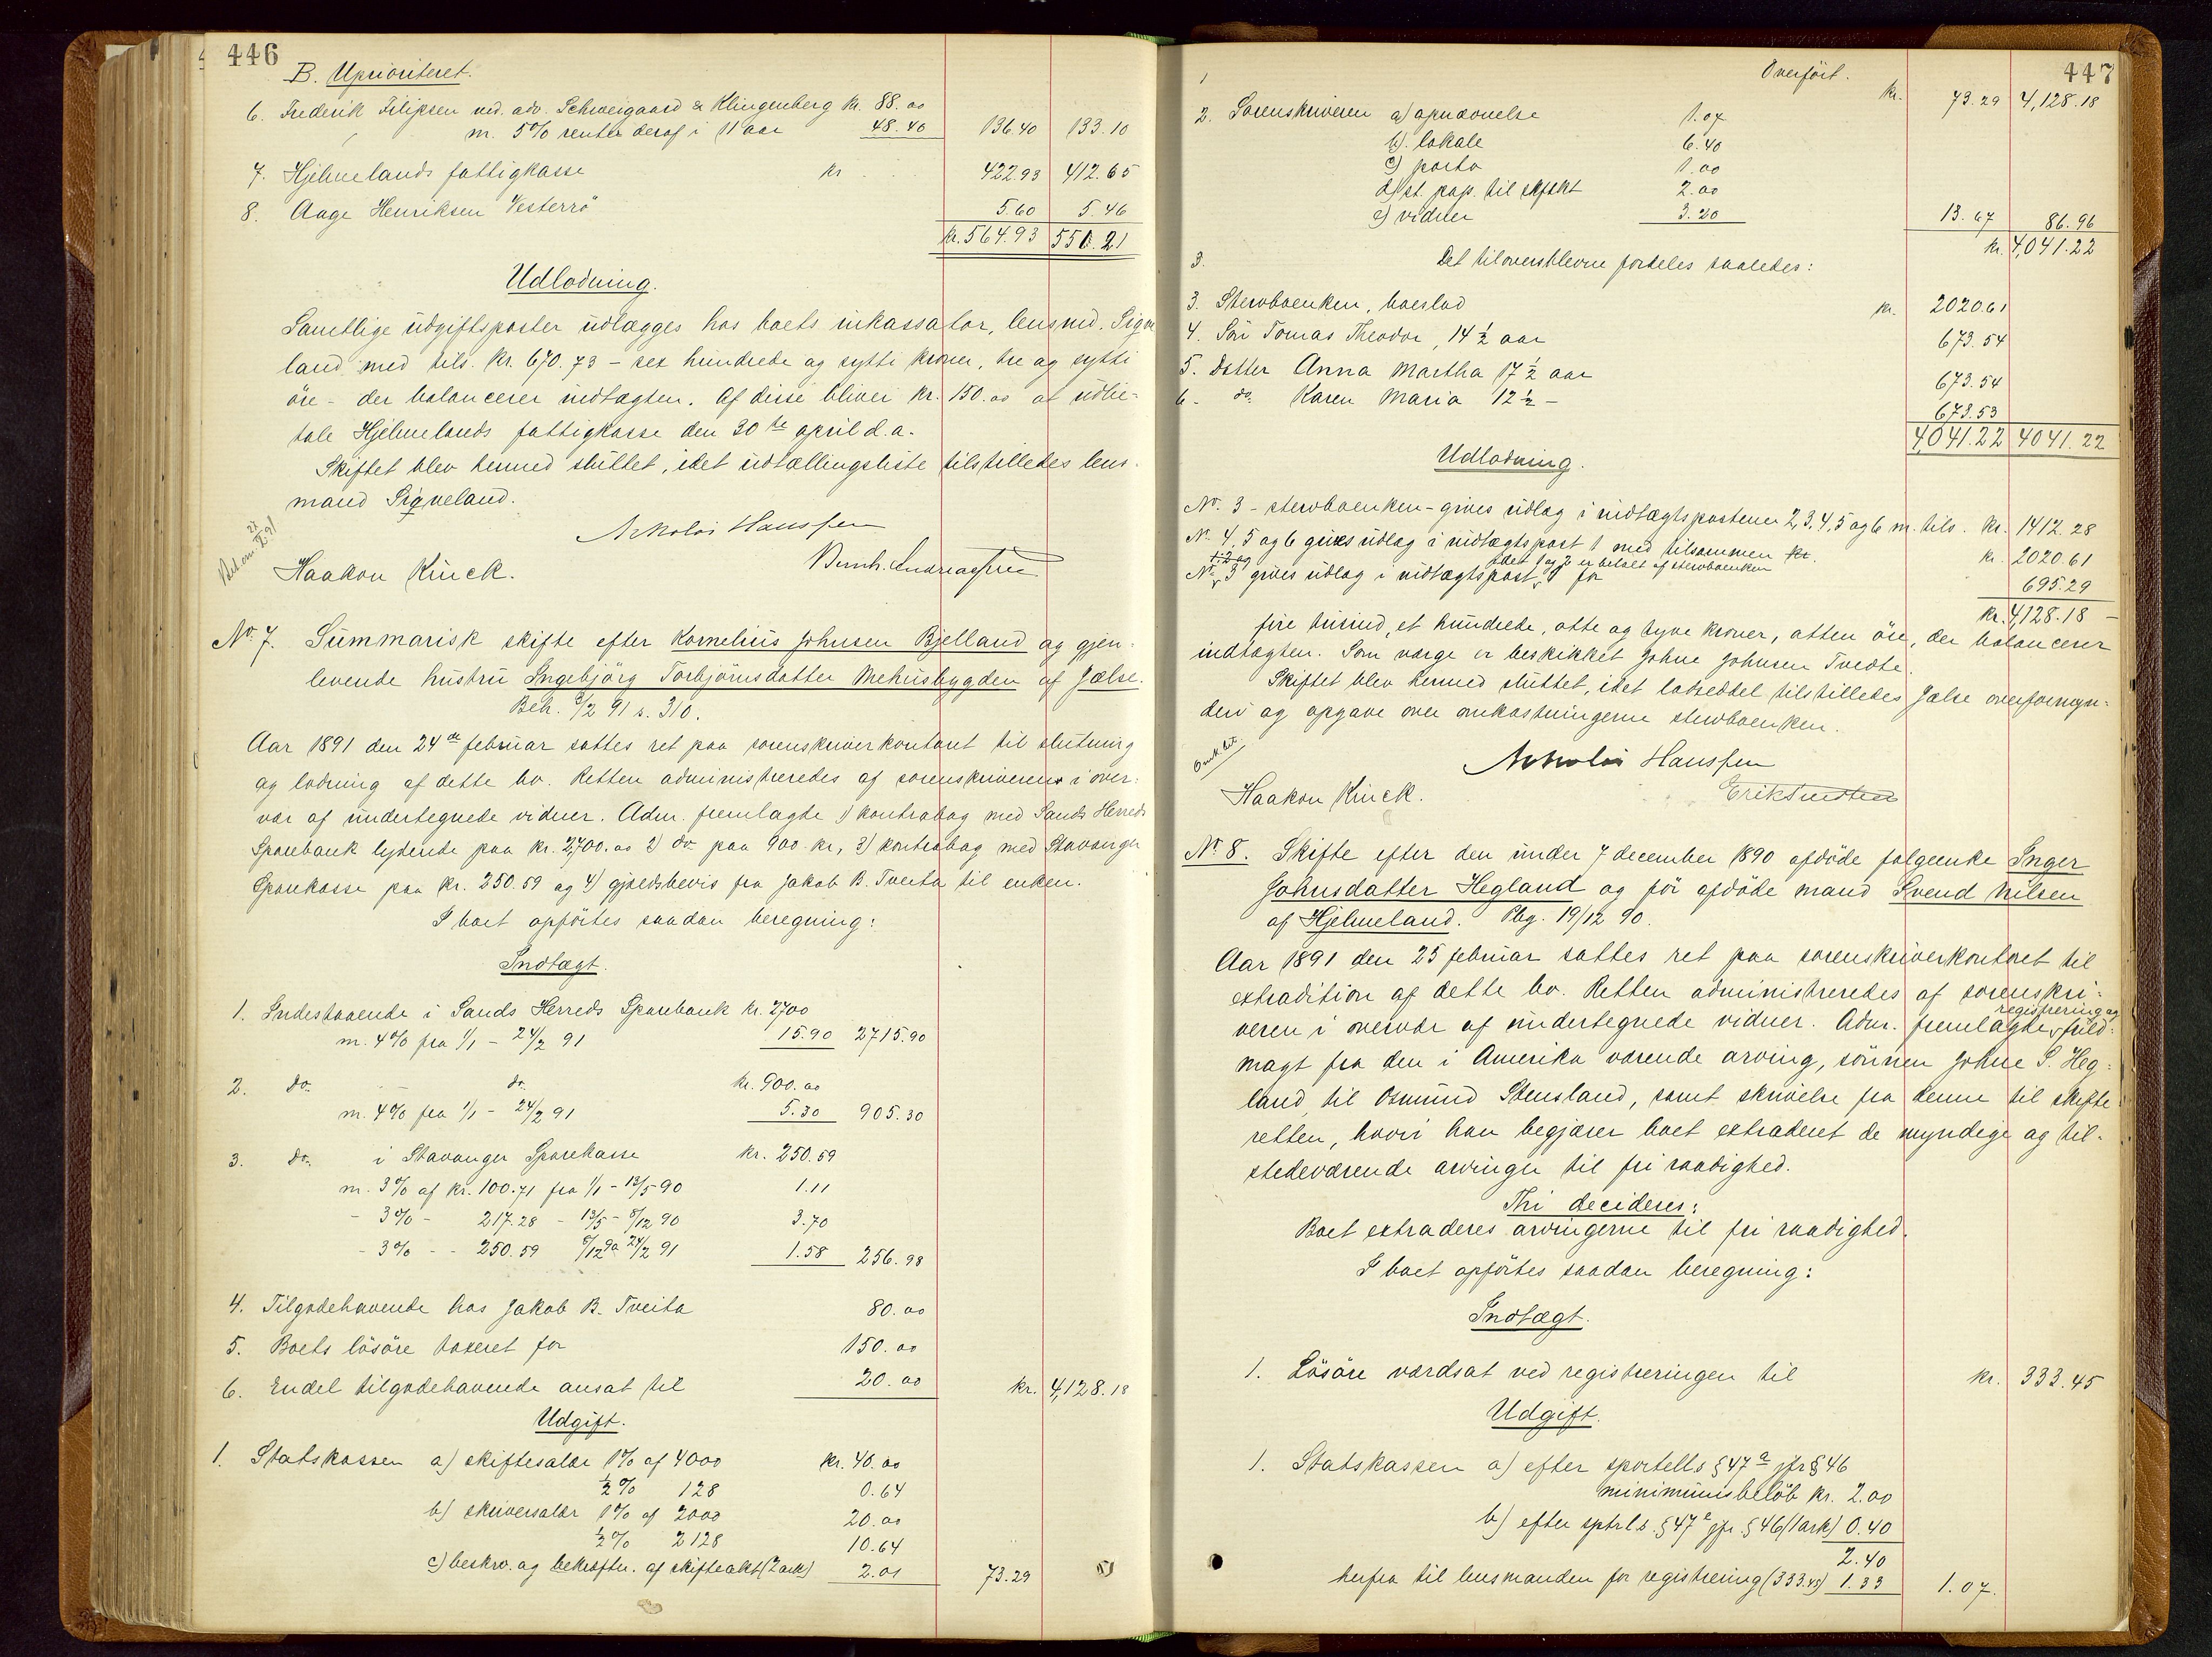 446
B. Uprioriteret.
6. Frederik Filipsen ved adv. Schweigaard & Klingenberg kr. 88.00
m. 5% rente deraf i 11 aar 48.40 136.40 133.10
7. Hjelmelands fattigkasse kr 422.93 412.65
8. Aage Henriksen Vesterrö 5.60 5.46
kr. 564.93 550.21
Udlodning.
Samtlige udgiftsposter udlægges hos boets inkassator, lensmd. Sigve
land med tils. kr. 670.73 – sex hundrede og sytti kroner, tre og sytti
öre – der balancerer indtægten. Af disse bliver kr. 150.00 at udbe-
tale Hjelmelands fattigkasse den 30te april d.a.
Skiftet blev hermed sluttet, idet udtællingsliste tilstilledes lens-
mand Sigveland.
Nikolai Hanssen
Haakon Kinck.
Bernh. Andreassen
No. 7. Summarisk skifte efter Kornelius Johnsen Bjelland og gjen-
levende hustru Ingebjörg Torbjörnsdatter Mehusbygden af Jælse.
Beh. 6/2 91 s. 310.
Aar 1891 den 24de februar sattes ret paa sorenskriverkontoret til slutning
og lodning af dette bo. Retten administreredes af sorenskriveren i over-
vær af undertegnede vidner. Adm. fremlagte 1) kontrabog med Sands Herreds
Sparebank lydende paa kr. 2,700.00 2) do paa 900 kr, 3) kontrabog med Stavanger
Sparekasse paa kr. 250.59 og 4) gjældsbevis fra Jakob B. Tveita til enken.
I boet opförtes saadan beregning:
Indtægt.
1. Indestaaende i Sands Herreds Sparebank kr. 2700
m. 4% fra 1/1 – 24/2 91 15.90 2715.90
2. do. – do. kr. 900.00
m. 4% fra 1/1 – 24/2 91 5.30 905.30
3. do. i Stavanger Sparekasse kr. 250.59
m. 3% af kr. 100.71 fra 1/1 – 13/5 90 1.11
– 3% – 217.28 – 13/5 – 8/12 90 3.70
– 3% – – 250.59 8/12 90 24/2 91 1.58 256.98
4. Tilgodehavende hos Jakob B. Tveita 80.00
5. Boets lösöre taxeret for 150.00
6. Endel tilgodehavende ansat til 20.00 kr. 4,128.18
Udgift.
1. Statskassen a) skiftesalær 1% af 4000 kr. 40.00
½% 128 0.64
b) skriversalær 1% af 2000 20.00
½% 2128 10.64
c) beskrv. og bekræftn. af skifteakt (2 ark) 2.01 73.29
447
Overfört. kr. 73.29 4,128.18
2. Sorenskriveren a) opnævnelse 1.07
b). lokale 6.40
c) porto 1.00
d) st. pap. til skftakt 2.00
e) vidner 3.20 13.67 86.96
kr. 4,041.22
Det tiloversblevne fordeles saaledes:
3. Stervboenken, boeslod kr. 2020.61
4. Sön Tomas Theodor, 14½ aar 673.54
5. Datter Anna Martha 17½ aar 673.54
6. do. Karen Maria 12½ – 673.53
4,041.22 4041.22
Udlodning.
No. 3 – stervboenken – gives udlæg i indtægtsposterne 2, 3, 4, 5 og 6 m. tils. kr. 1412.28
No. 4, 5 og 6 gives udlæg i indtægtspost 1 med tilsammen kr. kr. 2020.61
1, 2 og idet 1 og 2 er betalt af stervboenken
No. 3 gives udlæg i indtægtspost 1 for 695.29
kr. 4,128.18 –
fire tusind, et hundrede, otte og tyve kroner, atten öre, der balancerer
indtægten. Som værge er beskikket Johne Johnsen Tvedte.
Skiftet blev hermed sluttet, idet lodseddel tilstilledes Jælse overformyn-
deri og opgave over omkostningerne stervboenken.
Nikolai Hanssen
Haakon Kinck.
No. 8. Skifte efter den under 7 december 1890 afdöde følgeenke Inger
Johnsdatter Hegland og för afdöde mand Svend Nilsen
af Hjelmeland. Pbg. 19/12 90.
Aar 1891 den 25 februar sattes ret paa sorenskriverkontoret til
extradition af dette bo. Retten administreredes af sorenskri-
registrering og
veren i overvær af undertegnede vidner. Adm. fremlagde fuld-
magt fra den i Amerika værende arving, sönnen Johne S. Heg-
land, til Osmund Stensland, samt skrivelse fra denne til skifte
retten, hvori han begjærer boet extraderet de myndige og til-
stedeværende arvinger til fri raadighed.
Thi decideres:
Boet extraderes arvingerne til fri raadighed.
I boet opförtes saadan beregning:
Indtægt.
1. Lösöre værdsat ved registreringen til kr. 333.45
Udgift.
1. Statskassen a) efter sportells § 47 a jfr § 46
minimumsbelöb kr. 2.00
b) efter sptrl s. § 47 a jfr. § 46 (1 ark) 0.40
2.40
herfra til lensmanden for registrering (333.45) 1.33 1.07.